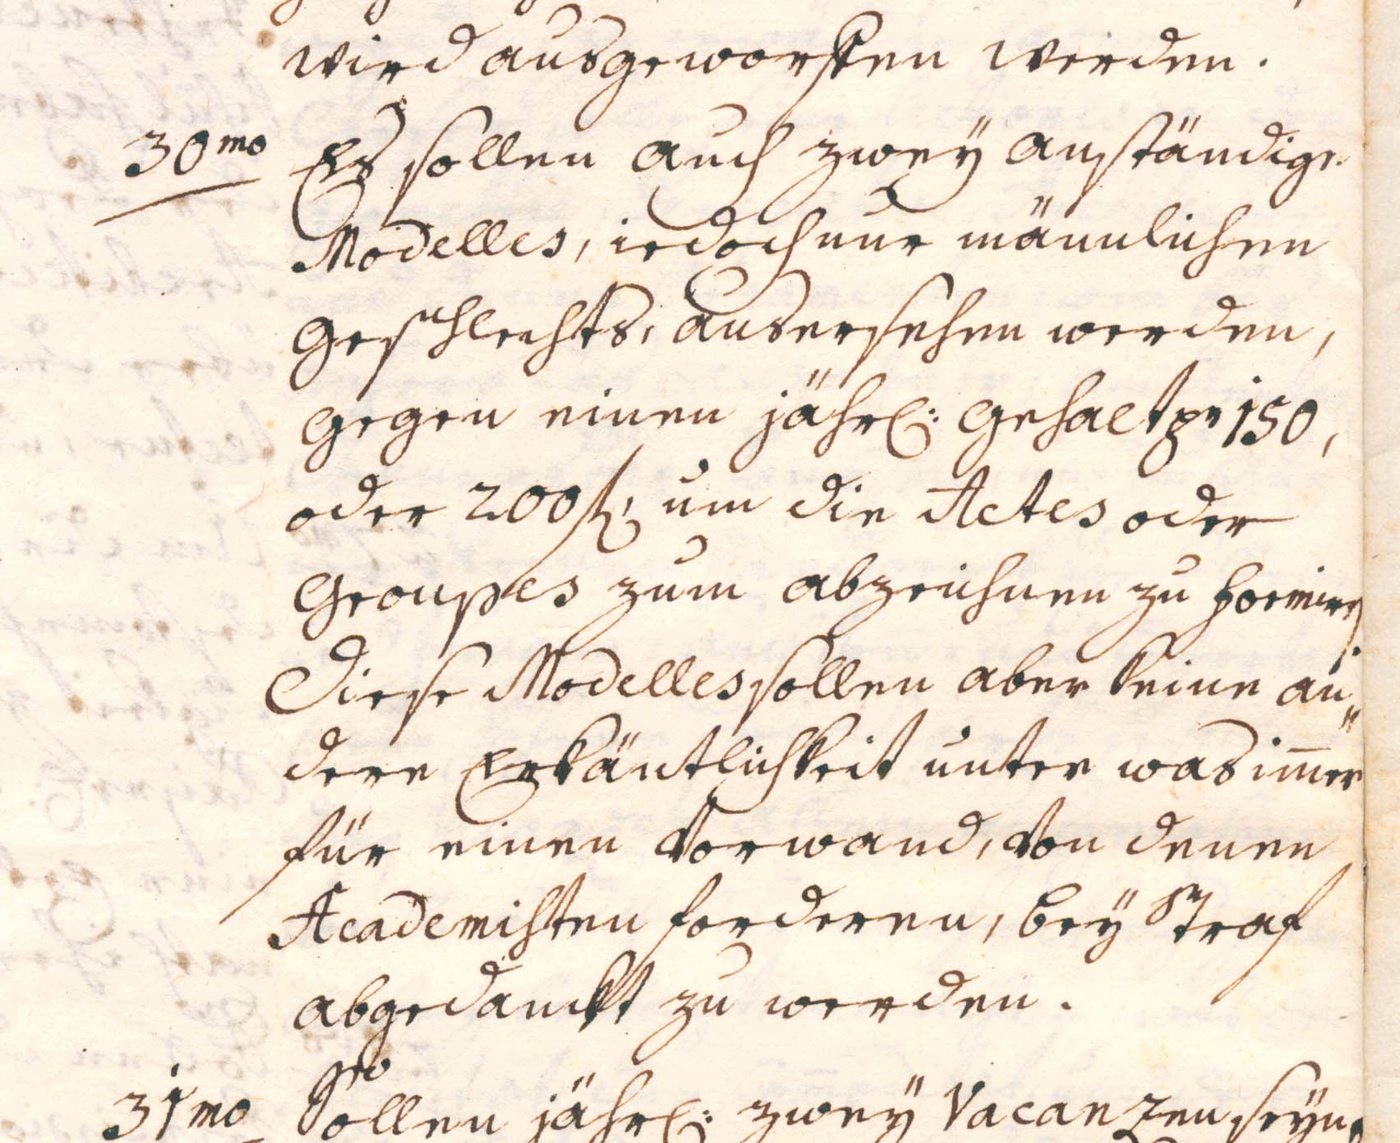 wird ausgeworffen werden.
30mo Es sollen auch zweÿ anständige
Modelles, iedoch nur männlichen
Geschlechts, ausersehen werden,
gegen einen jährl: Gehalt pr 150,
oder 200 fl, um die Actes oder
Groupes zum abzeichnen zu formiren
Diese Modelles sollen aber keine an„
dere Erkäntlichkeit unter was im̅er
für einen Vorwand, von denen
Academisten forderen, beÿ Straf
abgedanckt zu werden.
31mo Sollen jährl: zweÿ Vacanzen seÿn,